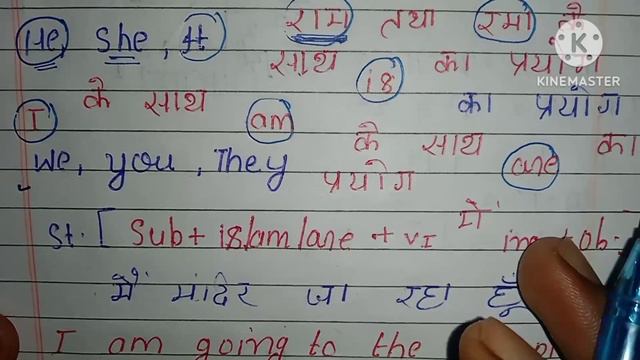 He she, It राम तथा रमा के
साथ is का प्रयोग
KINEMASTER
I के साथ am का प्रयोग
we, you, They के साथ are का
प्रयोग
St. [ Sub + is/am/are + VI में ing + ob:
मैं मंदिर जा रहा हूँ
I am going to the